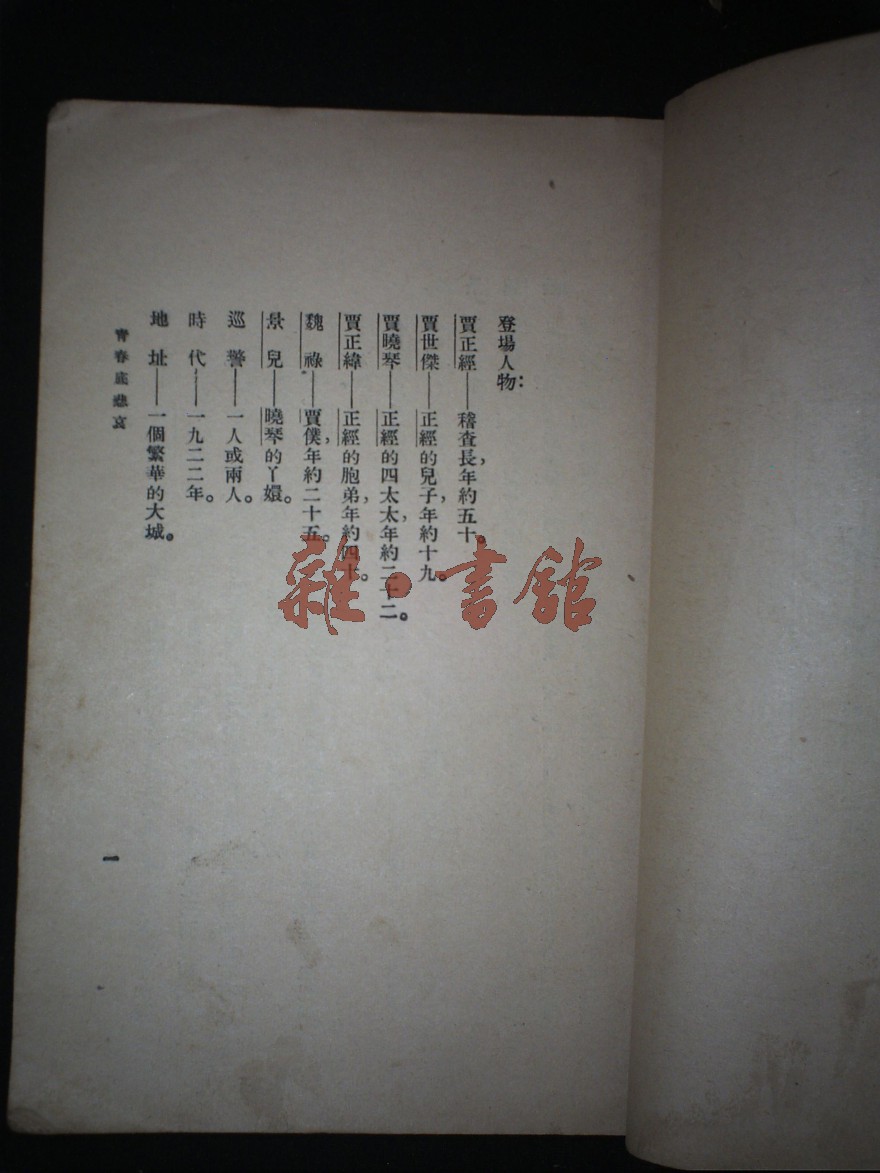 登場人物：
賈正經——稽查長，年約五十。
賈世傑——正經的兒子，年約十九。
賈曉琴——正經的四太太，年約二十二。
賈正緯——正經的胞弟，年約四十。
魏祿——賈僕，年約二十五。
景兒——曉琴的丫嬛。
巡警——一人或兩人。
時代——一九二二年。
地址——一個繁華的大城。
青春底悲哀
一
雜·書館